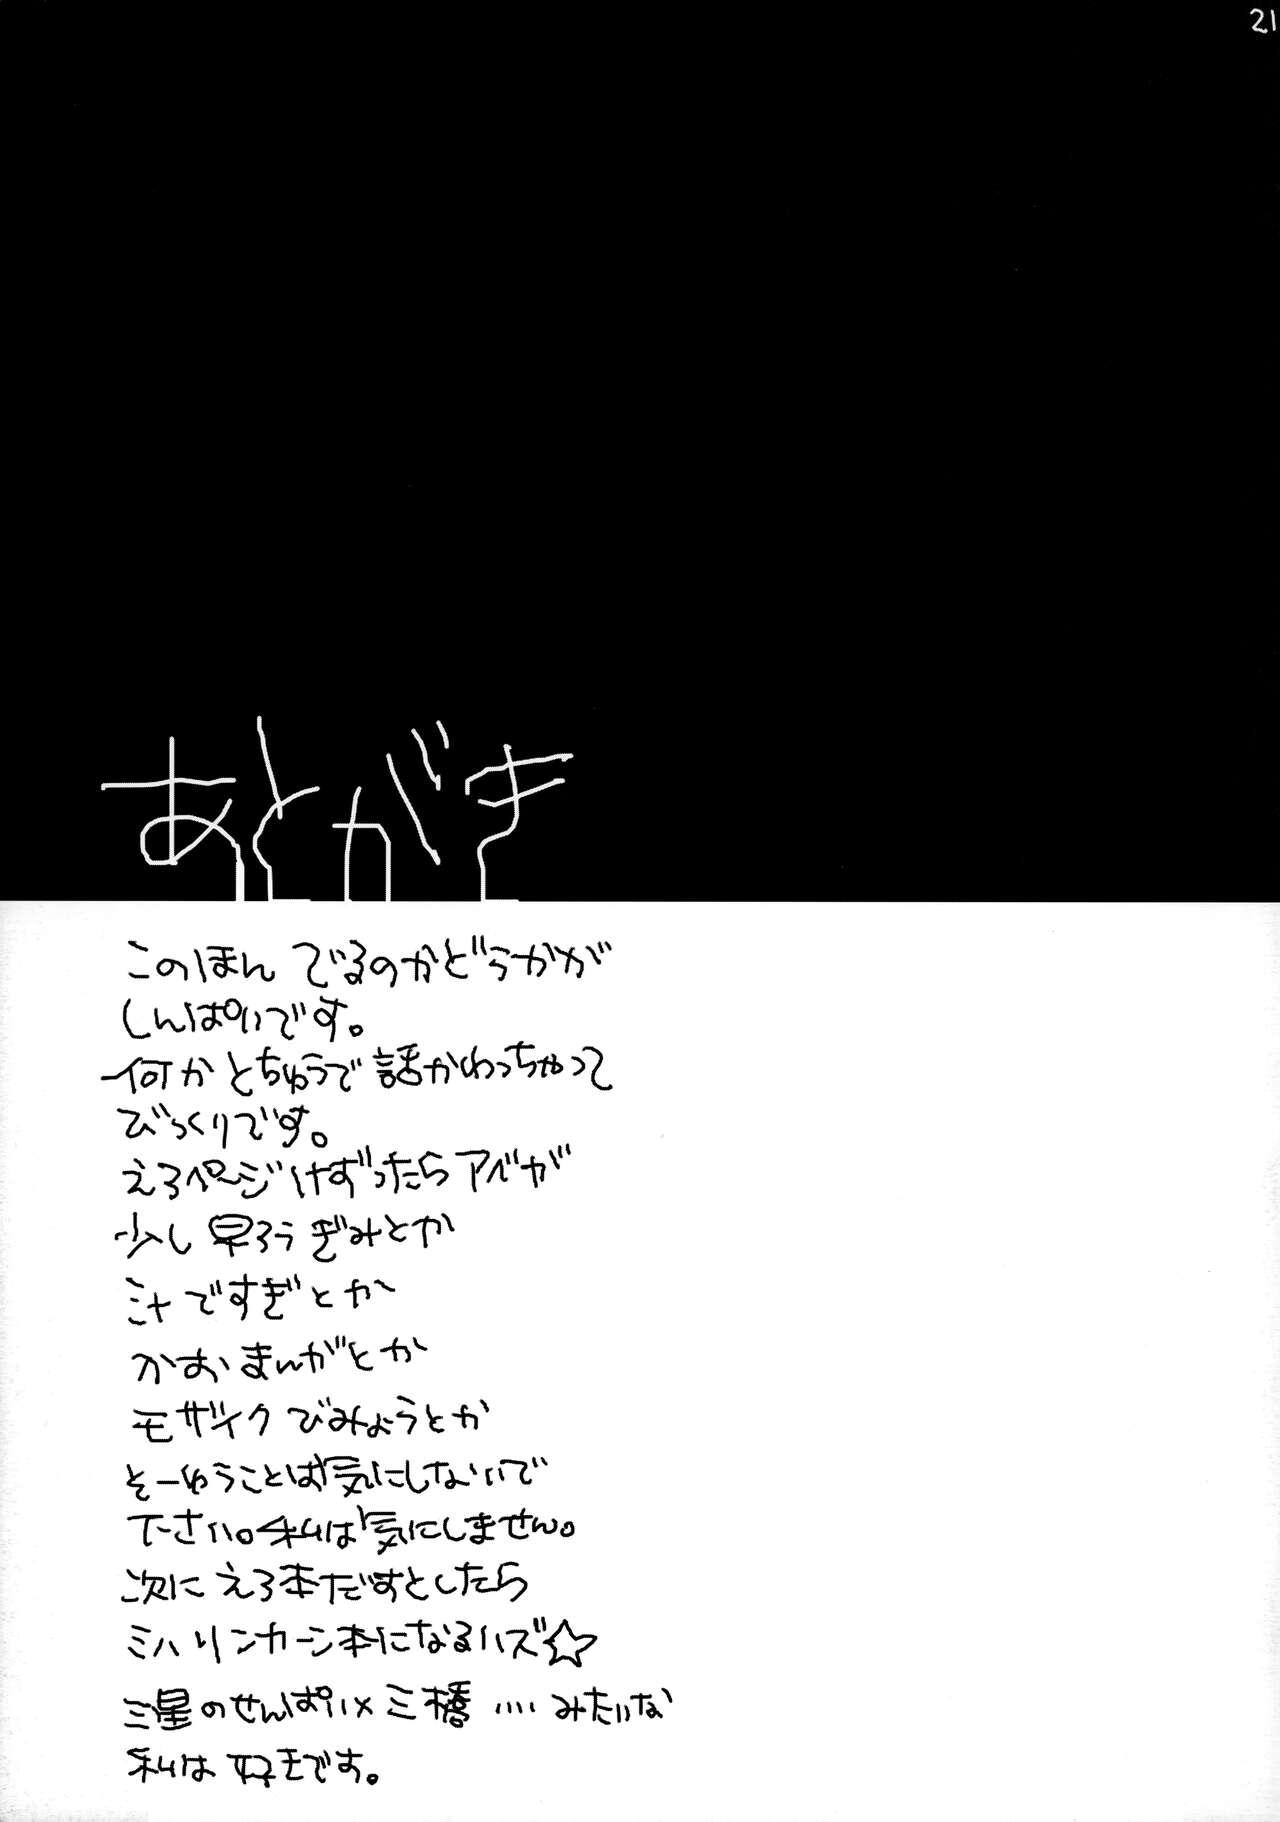 21
あとがき
このほん でるのかどうかが
しんぱいです。
何か とちゅうで 話かわっちゃって
びっくりです。
えろページ けずったらアベが
少し 早ろう ぎみとか
ミ十ですぎとか
かおまんがとか
モザイク びみょうとか
そーゆうことは気にしないで
下さい。私は気にしません。
次に えろ本だすとしたら
ミハリンカーン本になるハズ☆
三星のせんぱい×三橋 .... みたいな
私は 好きです。